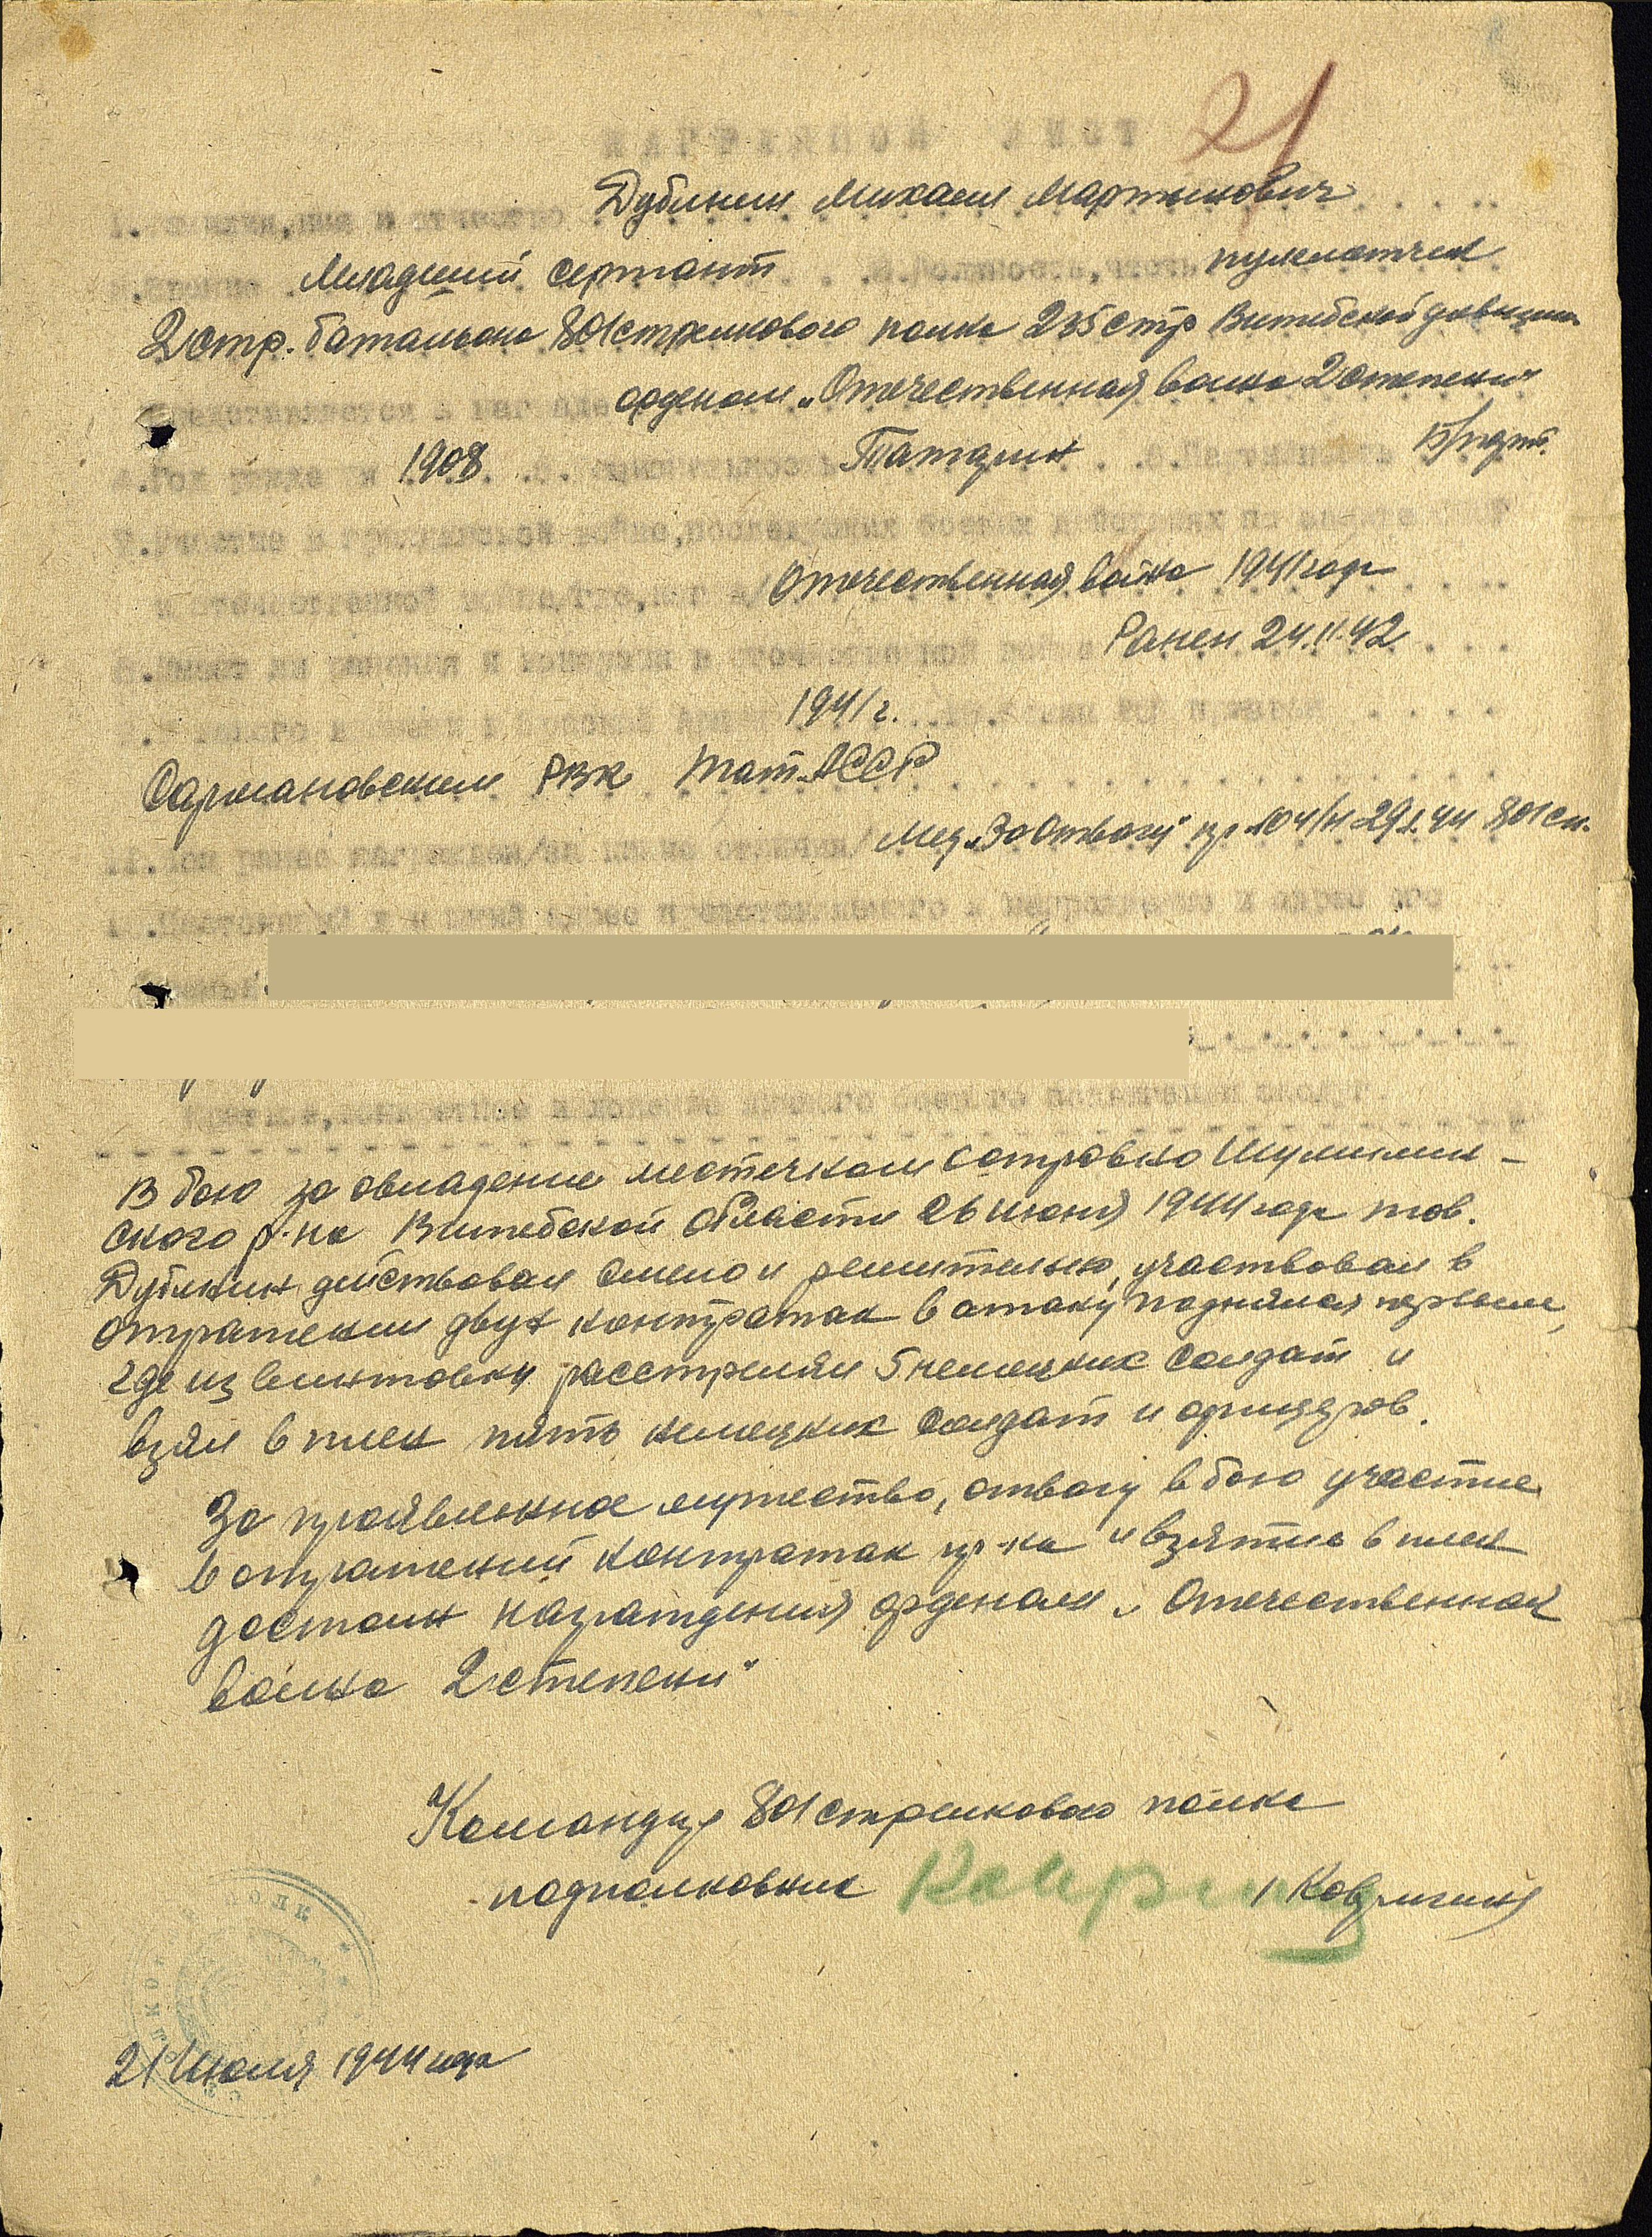 21
НАГРАДНОЙ ЛИСТ
Дублин Михаил Мартынович
1. Фамилия, имя и отчество
Младший сержант пулеметчик
2. Звание 3. Должность, часть
2 стр. батальона 801 стрелкового полка 235 стр Витебской дивизии
орденом „Отечественная война 2 степени"
Представляется к награде
1908 Татарин Б/парт.
4. Год рождения 5. Национальность 6. Партийность
7. Участие в гражданской войне, последующих боевых действиях по защите СССР
и отечественной войне
Отечественная война 1941 года
Ранен 24.11.42
8. Имеет ли ранения и контузии в отечественной войне
1941 г.
9. С какого времени в Красной Армии 10. Каким РВК призван
Сармановским РВК Тат. АССР
Мед. „За Отвагу" пр. 104/н 29.1.44 801 сп.
11. Чем ранее награжден/за какие отличия/
12. Постоянный домашний адрес представляемого к награждению и адрес его
семьи
Краткое, конкретное изложение личного боевого подвига или заслуг.
В бою за овладение местечком Островно Шумилин-
ского р-на Витебской области 26 июня 1944 года тов.
Дублин действовал смело и решительно, участвовал в
отражении двух контратак в атаку поднялся первым,
где из винтовки расстрелял 5 немецких солдат и
взял в плен пять немецких солдат и офицеров.
За проявленное мужество, отвагу в бою участие
в отражений контратак пр-ка и взятие в плен
достоин награждения орденом „Отечественная
война 2 степени"
Командир 801 стрелкового полка
подполковник / Ковригин /
21 Июля 1944 года